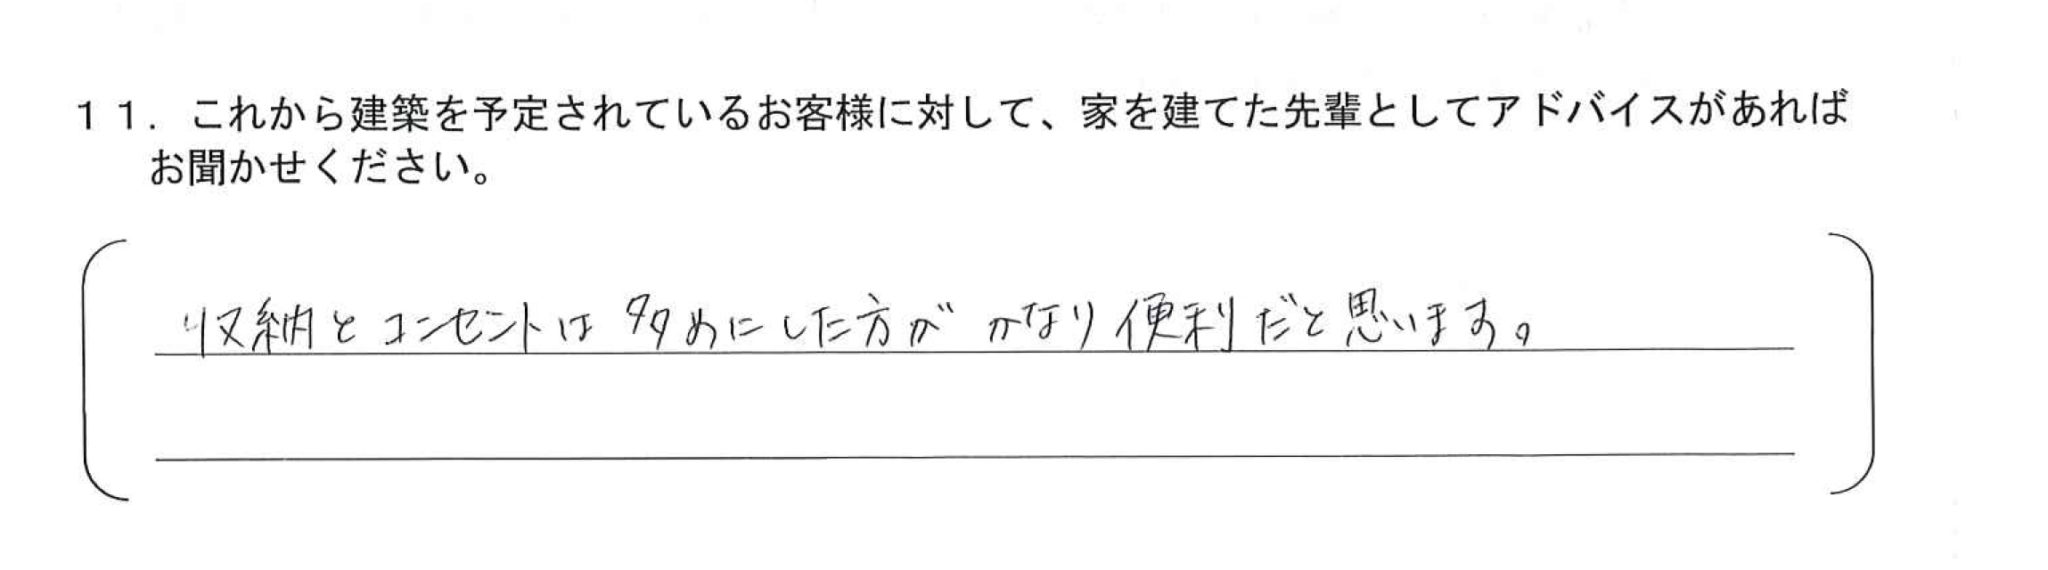 11．これから建築を予定されているお客様に対して、家を建てた先輩としてアドバイスがあれば
お聞かせください。
収納とコンセントは多めにした方が かなり便利だと思います。